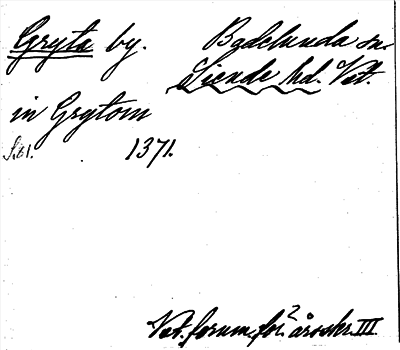 Gryta by. Badelunda sn.
Siende hd. Vst.
in Grytom
S. 61. 1371.
Vst. fornm. för. årsskr. III